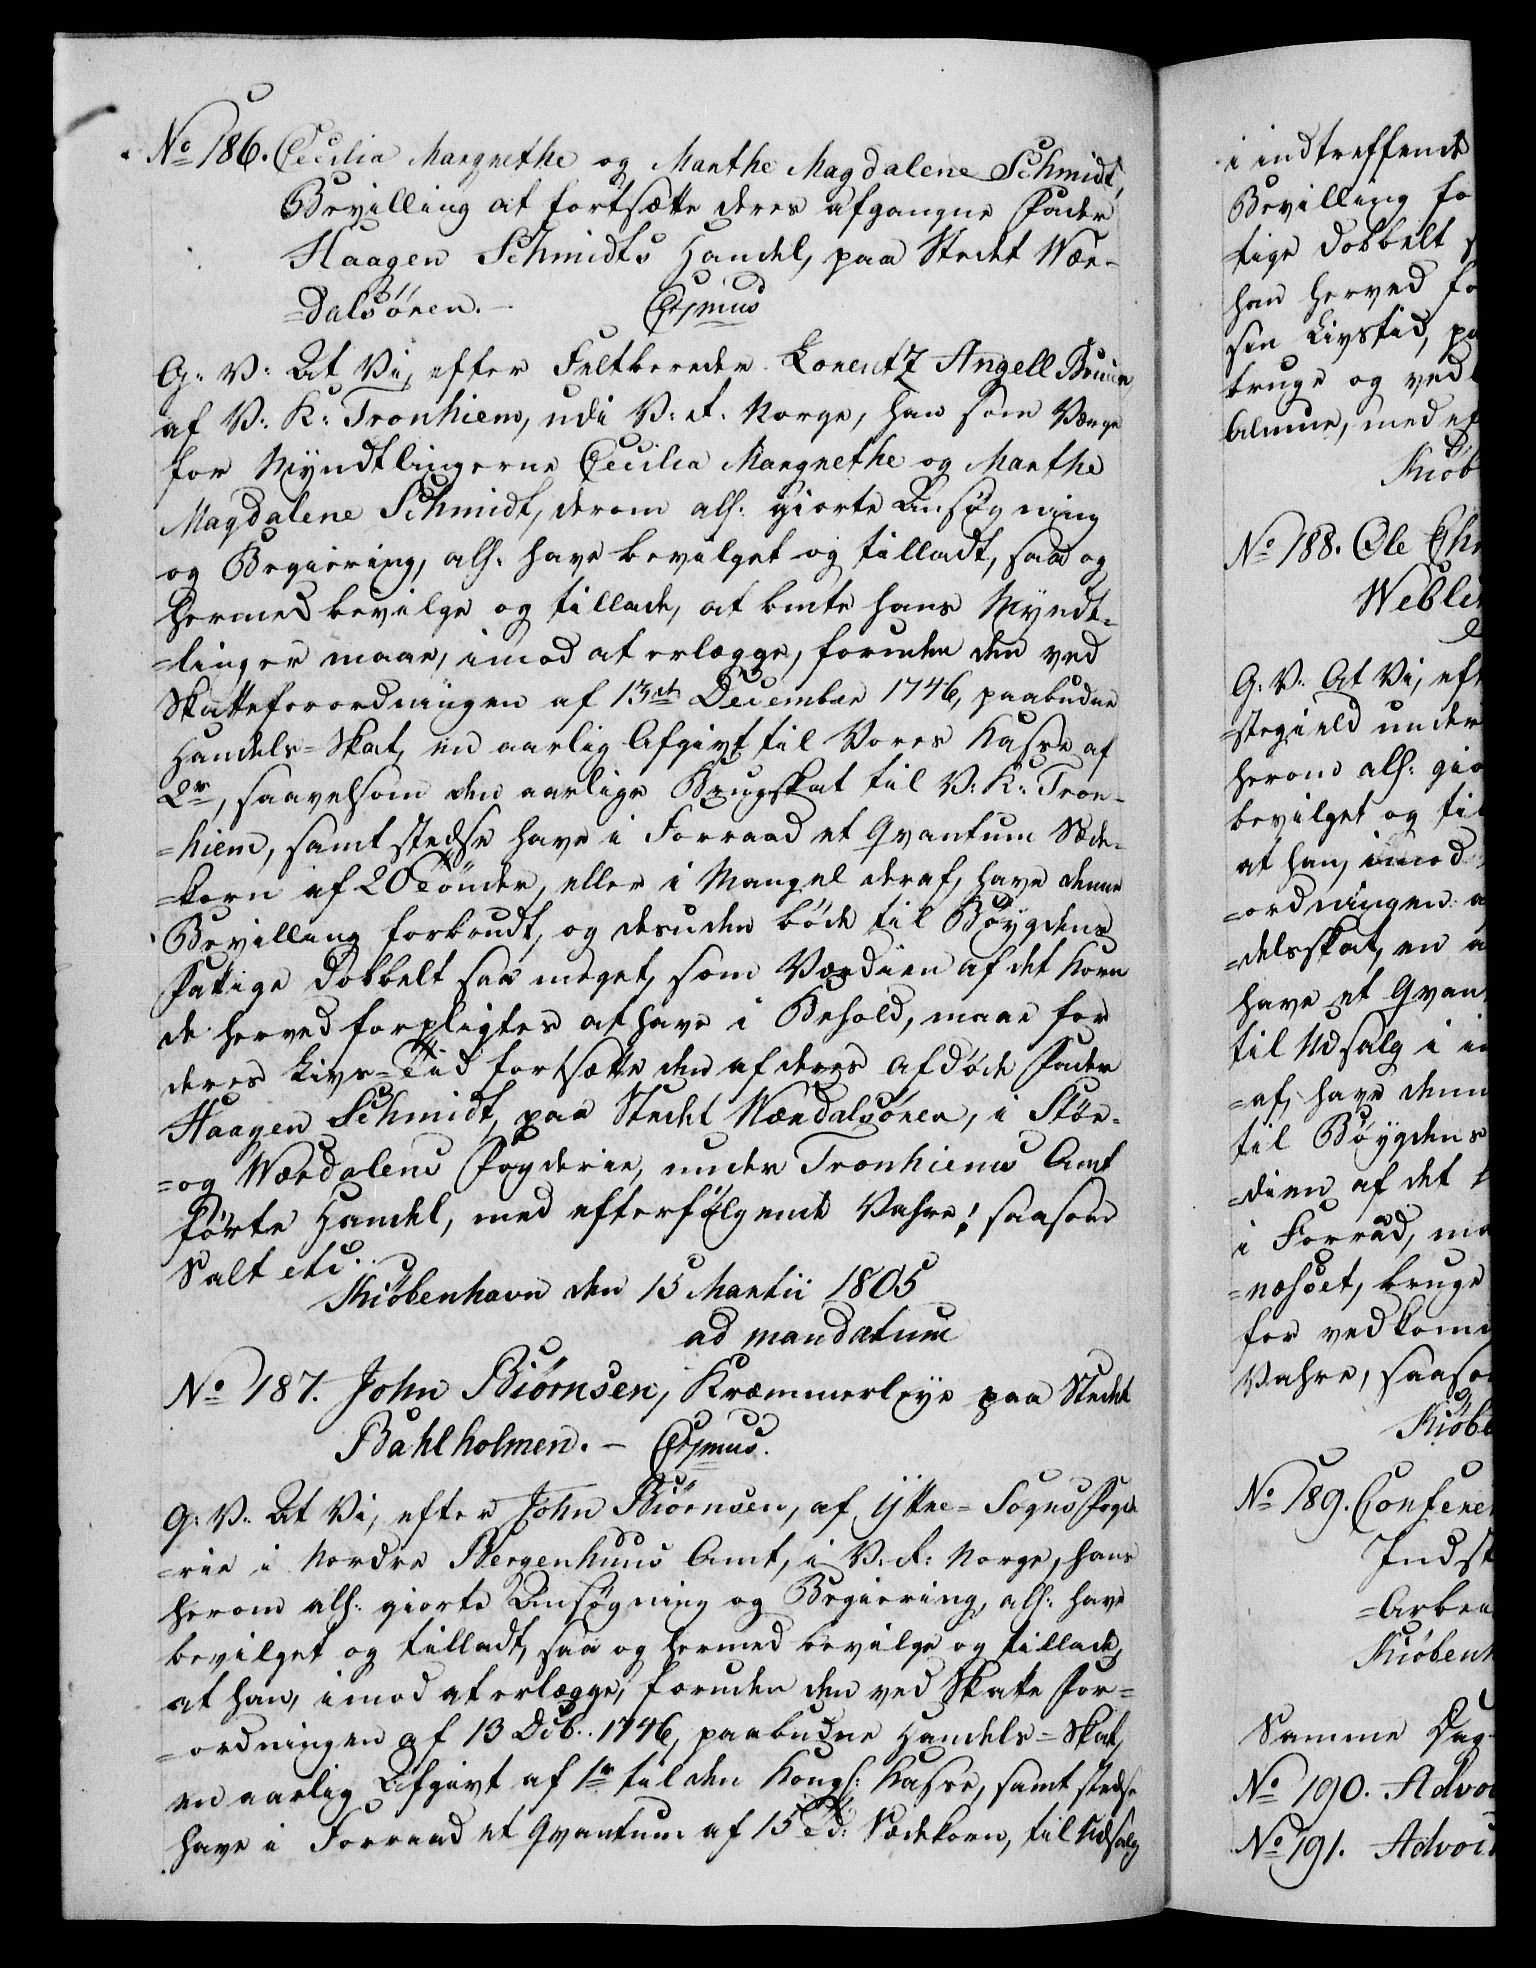 No 186. Cecilia Margrethe og Marthe Magdalene Schmidt,
Bevilling at fortsætte deres afgangne Fader
Haagen Schmidts Handel, paa Stedet Wær-
=dalsøren. –
G: V: At Vi, efter Feltbereder Lorentz Angell Bruun
af V: K: Tronhiem, udi V: R: Norge, han som Værge
for Myndtlingerne Cecilia Margrethe og Marthe
Magdalene Schmidt, derom alh: giorte Ansøgning
og Begiering, alh: have bevilget og tilladt, saa og
hermed bevilge og tillade, at bmte hans Myndt-
=linger maae, imod at erlægge, foruden den ved
Skatteforordningen af 13de December 1746, paabudne
Handels=Skat, en aarlig Afgivt til Vores Kasse af
2r, saavelsom den aarlige Brugskat til V: K: Tron-
=hiem, samt stedse have i Forraad et Qvantum Sæde-
=korn af 20 Tønder, eller i Mangel deraf, have denne
Bevilling forbrudt, og desuden bøde til Bøygdens
Fattige dobbelt saa meget, som Værdien af det Korn
de herved forpligtes at have i Behold, maae for
deres Livs=Tid fortsætte den af deres afdøde Fader
Haagen Schmidt, paa Stedet Wærdalsøren, i Stør-
=og Wærdalens Fogderie, under Tronhiems Amt
førte Handel, med efterfølgende Vahre: saasom
Salt etc.
Kiøbenhavn den 15 Martii 1805
ad mandatum
No 187. John Biørnsen, Kræmmerleye paa Stedet
Bahlholmen. –
G: V: At Vi, efter John Biørnsen, af Yttre=Sogns Fogde
=rie i Nordre Bergenhuus Amt, i V: R: Norge, hans
herom alh: giorte Ansøgning og Begiering, alh: have
bevilget og tilladt, saa og hermed bevilge og tillade,
at han, imod at erlægge, foruden den ved Skatte For=
=ordningen af 13 Dcb. 1746, paabudne Handels=Skat,
en aarlig Afgivt af 1r til den Kongl: Kasse, samt stedse
have i Forraad et Qvantum af 15 Td: Sædekorn, til Udsalg
i indtreffende
Bevilling fo
tige dobbelt
han herved fo
sin Livstid, pa
bruge og ved
Almue, med ef
Kiøb
No 188. Ole Chr
G: V: At Vi, eft
=stegield under
herom alh: gio
bevilget og til
at han, imod
=ordningen a
=delsskat, en a
have et Qvan
til Udsalg i in
=af, have denn
til Bøygdens
=dien af det
i Forraad, ma
=næsset, bruge
for vedkom
Vahre, saaso
Kiøbe
No 189. Conferen
Indst
=Arben
Kiøbenh
Samme Dag
No 190. Advo
No 191. Advo